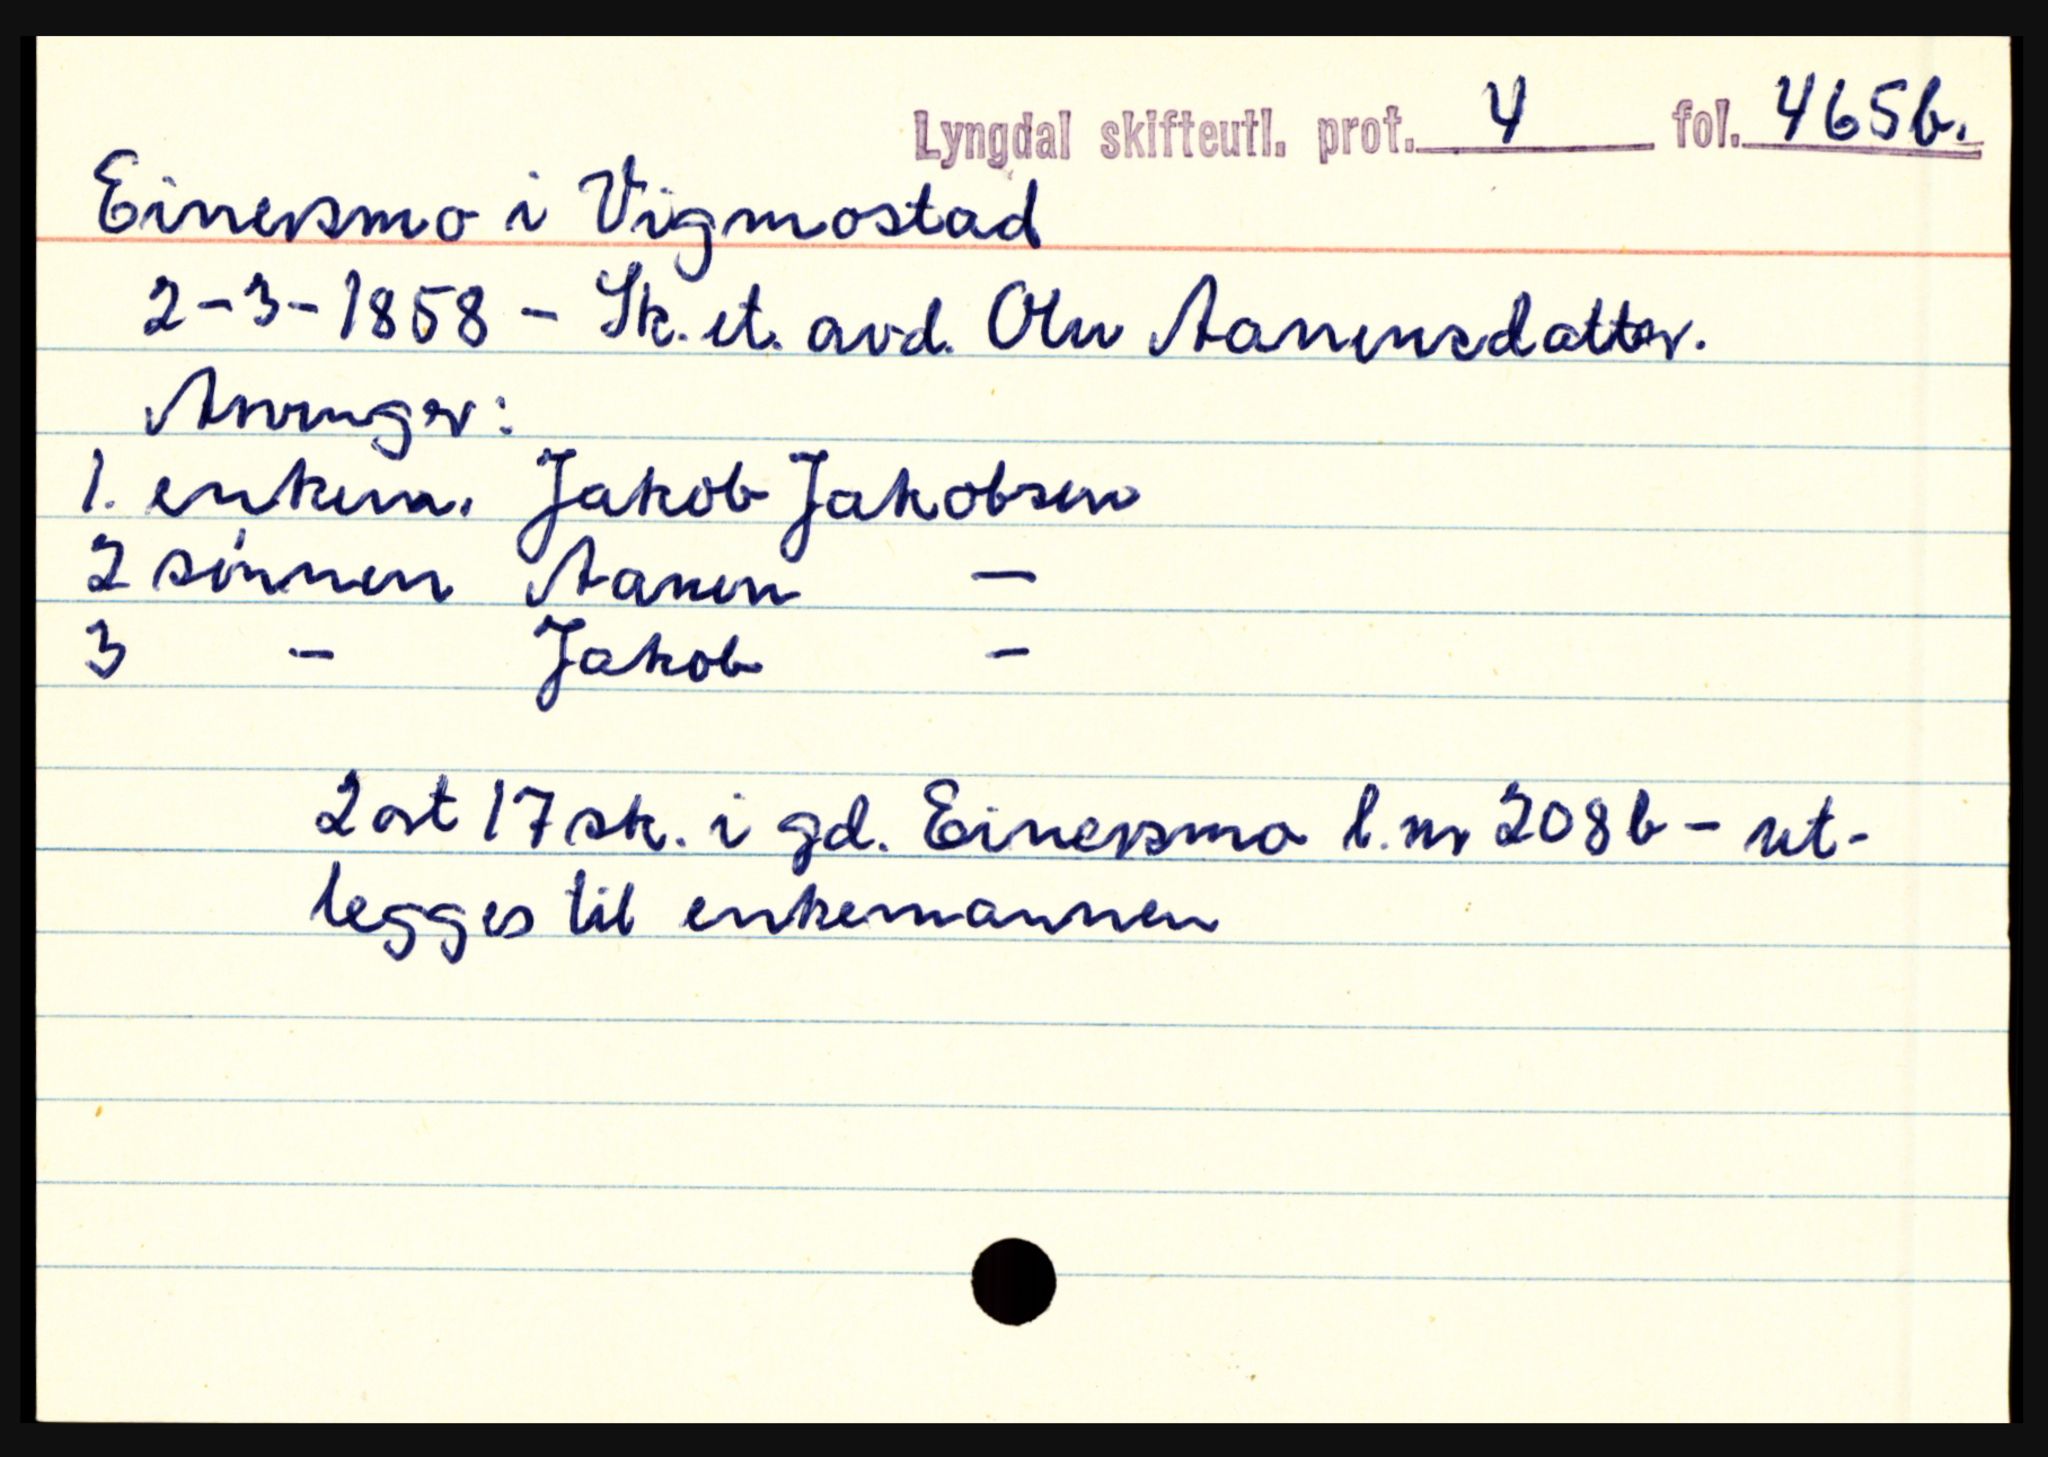 Lyngdal skifteutl. prot. 4 fol. 465b.
Einersmo i Vigmostad
2-3-1858 - Sk. et. avd. Olu Aanensdatter.
Arvinger:
1. enkem. Jakob Jakobsen
2 sønnen Aanen —
3 - Jakob -
2 ort 17 sk. i gd. Einersmo l.nr 208b - ut-
legges til enkemannen